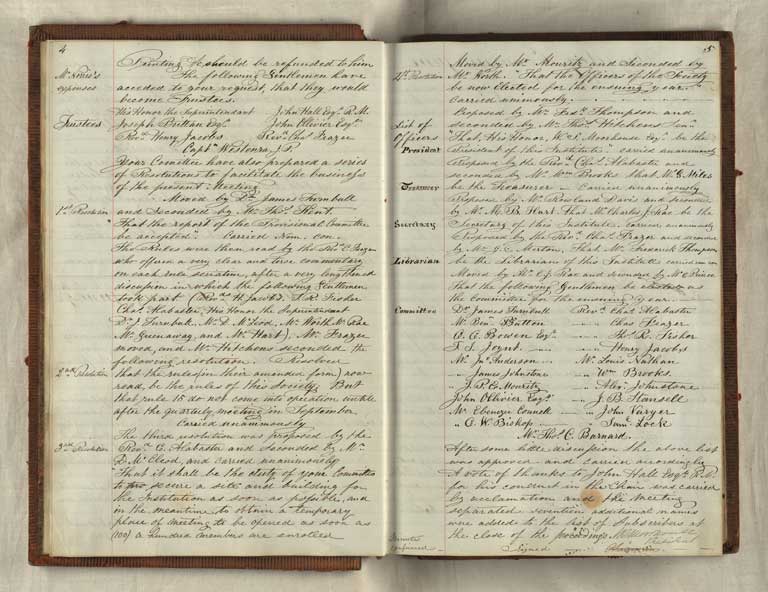 4
Printing &c should be refunded to him
Mr Norris's expenses
The following Gentlemen have
acceded to your request, that they would
become Trustees.
Trustees
His Honor the Superintendent John Hall Esqr. R.M.
Joseph Brittan Esqr. John Ollivier Esqr.
Revd. Henry Jacobs Revd. Chas. Frazer
Captn. Westenra J.P.
Your Committee have also prepared a series
of Resolutions to facilitate the business
of the present Meeting.
1st Resolution
Moved by Dr. James Turnbull
and Seconded by Mr. Thos. Kent.
"That the report of the Provisional Committee
be accepted." Carried Nem. Con.
The Rules were then read by the Revd. C. Frazer
who offered a very clear and terse commentary
on each rule seriatim, after a very lengthened
discussion in which the following Gentlemen
took part (Revd. H. Jacobs, T. R. Fisher
Chas. Alabaster, His Honor the Superintendent
Dr. J. Turnbull, Mr. D. McLeod, Mr. Worth, Mr. Rae
Mr. Greenaway, and Mr. Hart), Mr. Frazer
moved, and Mr. Hitchens seconded the
following resolution. Resolved
2nd Resolution
that the rules (in their amended form) now
read, be the rules of this Society. But
that rule 15 do not come into operation until
after the quarterly meeting in September
Carried unanimously
3rd Resolution
The third resolution was proposed by the
Revd. C. Alabaster and Seconded by Mr.
D. McCleod, and carried unanimously
That it shall be the duty of your Committee
to secure a site and building for
the Institution as soon as possible, and
in the meantime to obtain a temporary
place of meeting to be opened as soon as
(100) a hundred members are enrolled
5
4th Resolution
Moved by Mr. Mouritz and Seconded by
Mr. Worth. "That the Officers of the Society
be now elected for the ensuing year."
Carried unanimously.
List of Officers
Proposed by Mr. Fredc. Thompson and
seconded by Mr. Thos. Hitchens Senr.
President
That His Honor W. S. Moorhouse Esqr. be the
President of this Institute. carried unanimously
Proposed by the Revd. Chas. Alabaster and
seconded by Mr. Wm. Brooks that W. G. Miles
Treasurer
be the Treasurer — Carried unanimously
Proposed by Mr. Rowland Davis and seconded
by Mr. M. B. Hart. That Mr. Charles J. Rae be the
Secretary
Secretary of this Institute. Carried unanimously
Proposed by the Revd. Chas. Frazer and seconded
by Mr. J. E. Morton, That Mr. Frederick Thompson
Librarian
be the Librarian of this Institute carried unanim
Moved by Mr. C. J. Rae and seconded by Mr. C. Prince
That the following Gentlemen be elected as
the Committee for the ensuing year.
Committee
Dr. James Turnbull Revd. Chas. Alabaster
Mr. Benn. Button " Chas. Frazer
C. C. Bowen Esqr. " Thos. R. Fisher
T. S. Joynt " Henry Jacobs
Mr. Jno. Anderson Mr. Louis Nathan
" James Johnstone " Wm. Brooks
" J. P. C. Mouritz " Alexr. Johnstone
John Ollivier Esqr. " J. B. Hansell
Mr. Ebenezer Connell " John Varyer
" C. W. Bishop " Saml. Locke
Mr. Thos. C. Barnard.
After some little discussion the above list
was approved and Carried accordingly
A vote of thanks to John Hall Esqr. R.M.
for his conduct in the Chair was carried
by acclamation and the Meeting
separated. Seventeen additional names
were added to the list of Subscribers at
the close of the proceedings
Minutes Confirmed
Signed
President